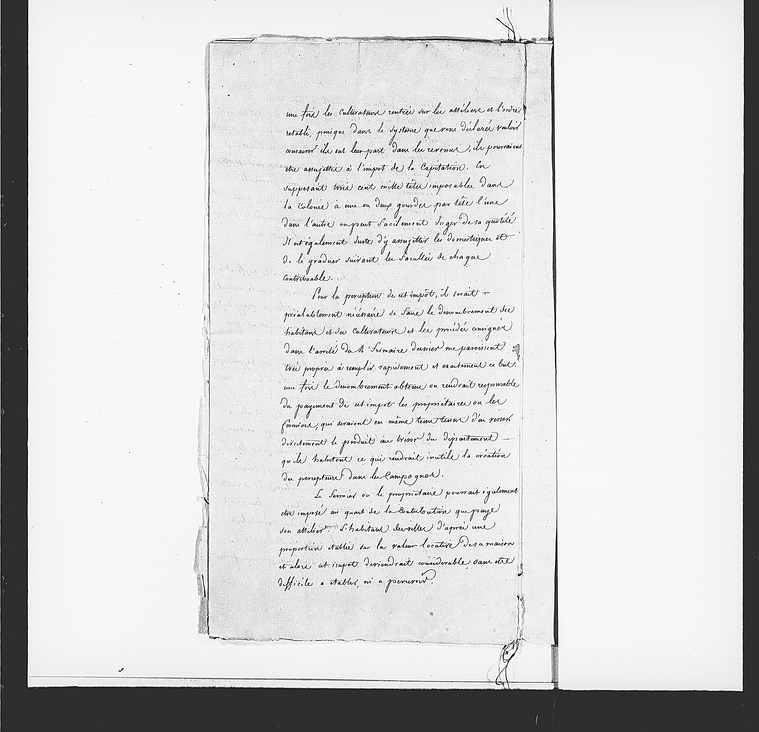 une fois les cultivateurs rentrés sur les atteliers et l'ordre
retabli, puisque dans le systeme que vous déclarés vouloir
conserver ils ont leur part dans les revenus, ils pourraient
être assujettis à l'impot de la Capitation. En
supposant trois cent mille têtes imposables dans
la Colonie à une ou deux gourdes par tête l'une
dans l'autre on peut facilement juger de sa quotité
Il est également juste d'y assujettir les domestiques et
de le graduer suivant les facultés de chaque
contribuable.
Pour la perception de cet impôt, il serait
préalablement nécéssaire de faire le denombrement des
habitans et des Cultivateurs et les procédés consignés
dans l'arrêté du 4 frimaire dernier me paroissent
très propres à remplir rapidement et exactement ce but.
une fois le denombrement obtenu on rendrait responsable
du payement de cet impot les propriétaires ou les
fermiers, qui seraient en même tems tenus d'en verser
directement le produit au trésor du département
qu'ils habitent ce qui rendrait inutile la création
des percepteurs dans les Campagnes.
Le fermier ou le propriétaire pourrait également
être imposé au quart de la Contribution que paye
son attelier. L'habitant des villes d'après une
proportion etablie sur la valeur locative de sa maison
et alors cet impot deviendrait considerable, sans etre
difficile a etablir, ni a percevoir.